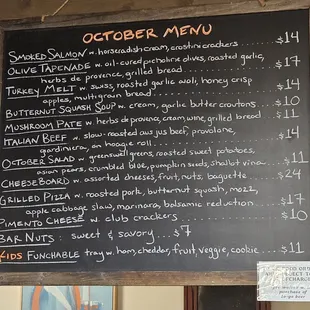 OCTOBER MENU
SMOKED SALMON w. horseradish cream, crostini crackers $14
OLIVE TAPENADE w. oil-cured picholine olives, roasted garlic,
herbs de provence, grilled bread $17
TURKEY MELT w. swiss, roasted garlic aioli, honey crisp
apples, multigrain bread $14
BUTTERNUT SQUASH SOUP w. cream, garlic butter croutons $10
MUSHROOM PATE w. herbs de provence, cream, wine, grilled bread $11
ITALIAN BEEF w. slow-roasted aus jus beef, provolone,
giardiniera, on hoagie roll $14
OCTOBER SALAD w. greens, roasted sweet potatoes,
asian pears, crumbled bloe, pumpkin seeds, shallot vina $11
CHEESEBOARD w. assorted cheeses, fruit, nuts, baguette $24
GRILLED PIZZA w. roasted pork, butternut squash, mozz,
apple cabbage slaw, marinara, balsamic reduction $17
PIMENTO CHEESE w. club crackers $10
BAR NUTS: sweet & savory $7
KIDS FUNCHABLE tray w. ham, cheddar, fruit, veggie, cookie $11